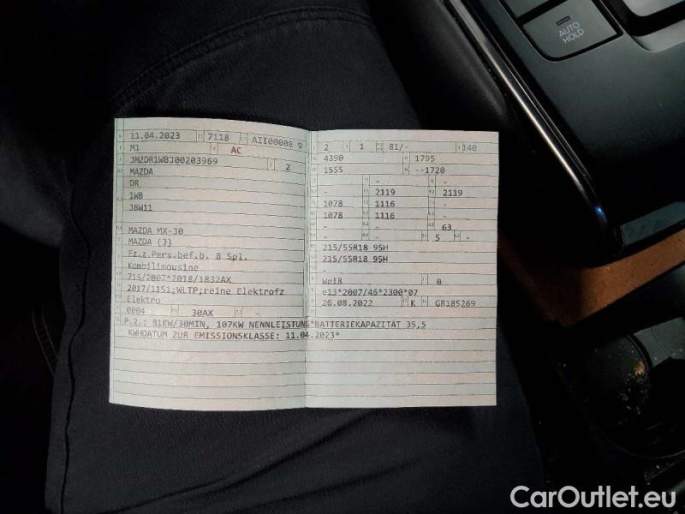 AUTO
HOLD
11.04.2023 7118 AII00008 9
M1 AC
JMZDR1WBJ00203969 2
MAZDA
DR
1WB
JBW11
MAZDA MX-30
MAZDA (J)
Fz.z.Pers.bef.b. 8 Spl.
Kombilimousine
715/2007*2018/1832AX
2017/1151;WLTP;reine Elektrofz
Elektro
0004 30AX -
2 1 81/- 140
4390 1795
1555 --1720
- -
- 2119 2119
1078 1116 -
1078 1116 -
- - 63
- 5 -
215/55R18 95H
215/55R18 95H
-
Weiß 0
e13*2007/46*2300*07
26.08.2022 K GR185269
P.2.: 81KW/30MIN, 107KW NENNLEISTUNG*BATTERIEKAPAZITÄT 35,5
KWH*DATUM ZUR EMISSIONSKLASSE: 11.04.2023*
CarOutlet.eu